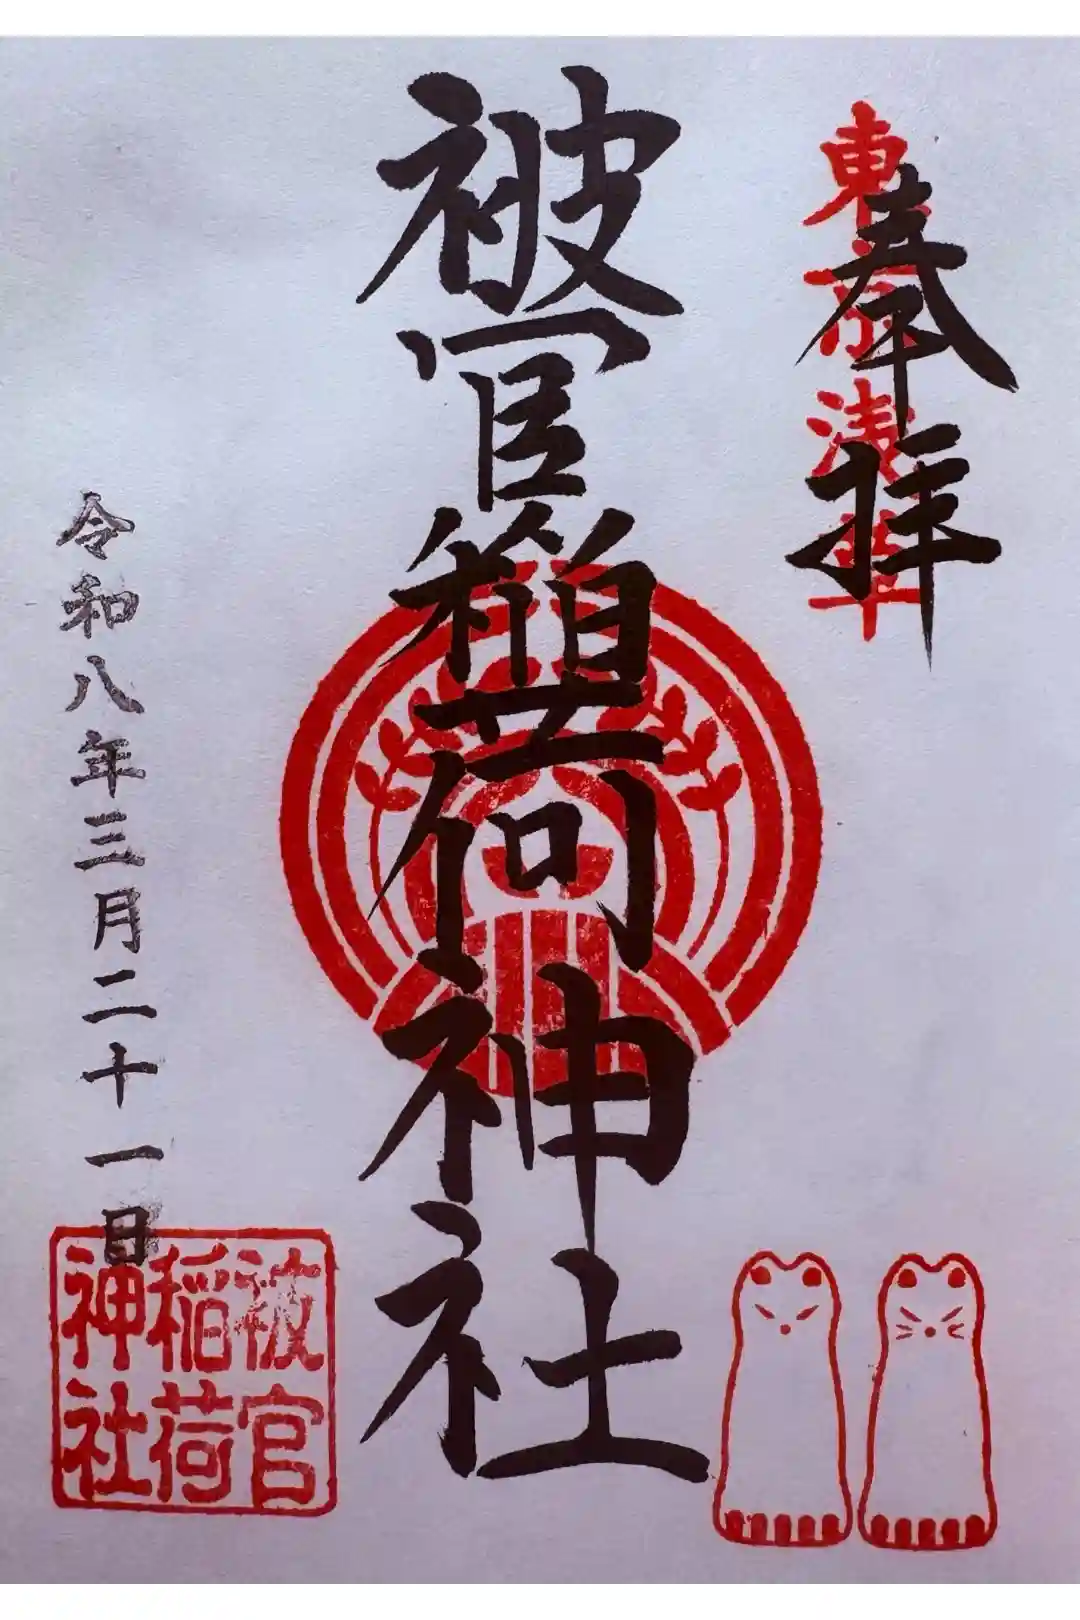 奉拝
東京浅草
被官稲荷神社
令和八年三月二十一日
被官
稲荷
神社